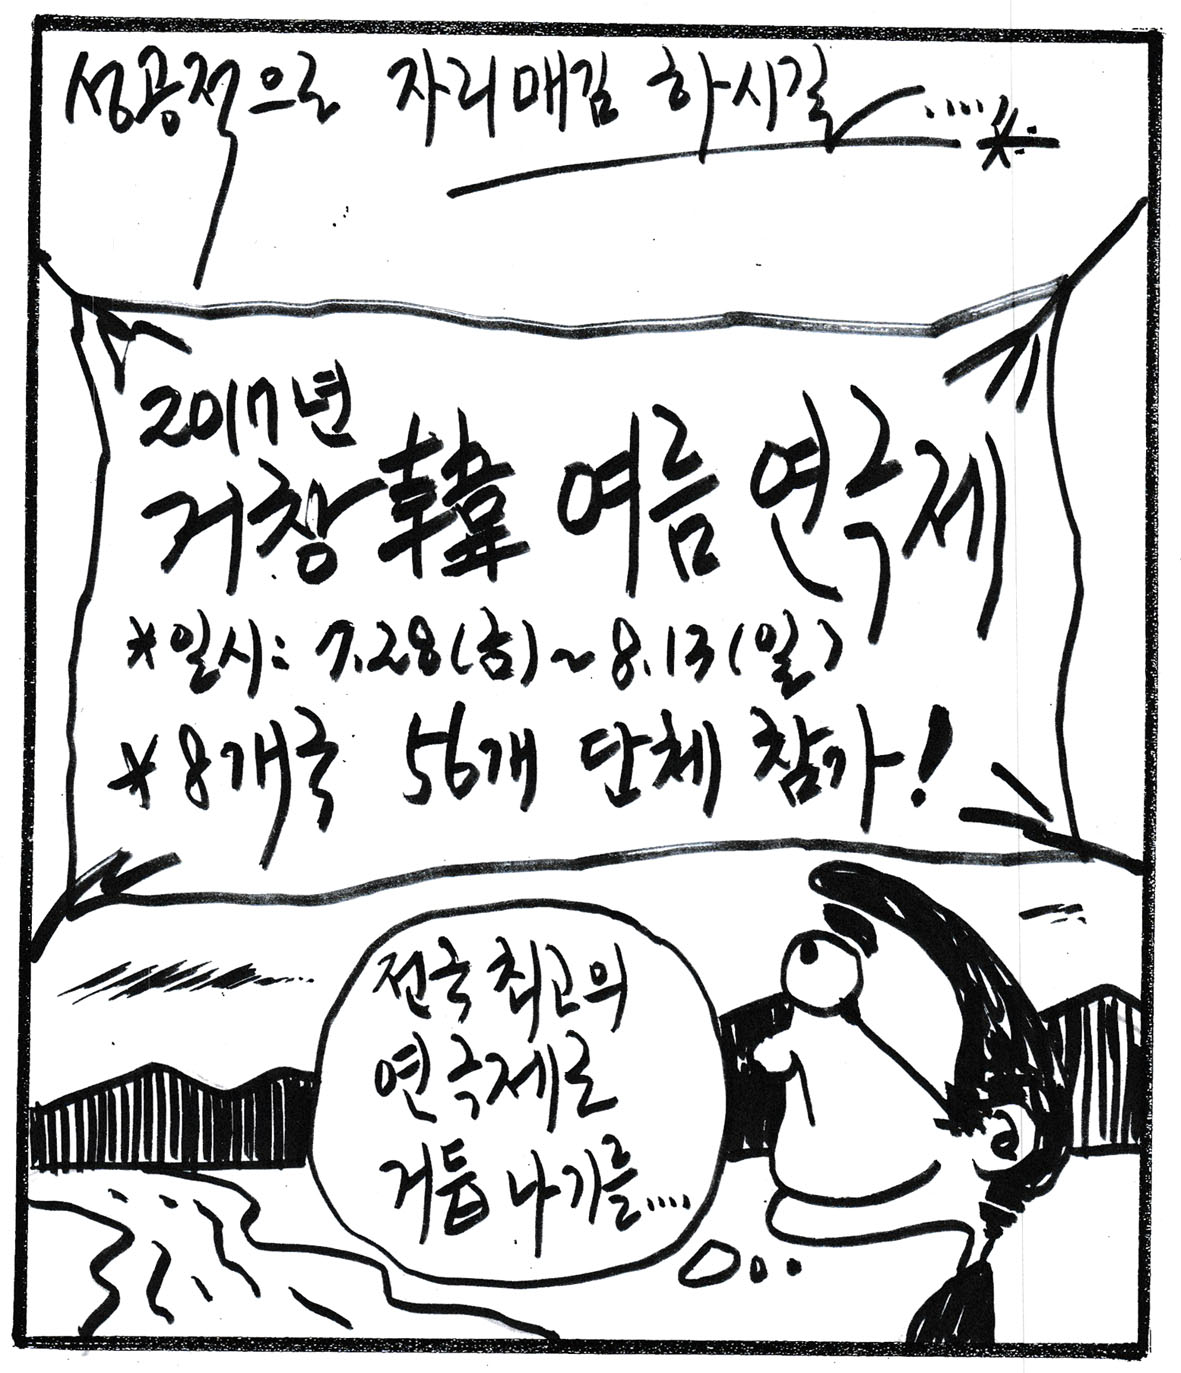 성공적으로 자리매김 하시길.....*
2017년
거창韓 여름 연극제
*일시: 7.28(금)~8.13(일)
*8개국 56개 단체 참가!
전국 최고의
연극제로
거듭나기를....